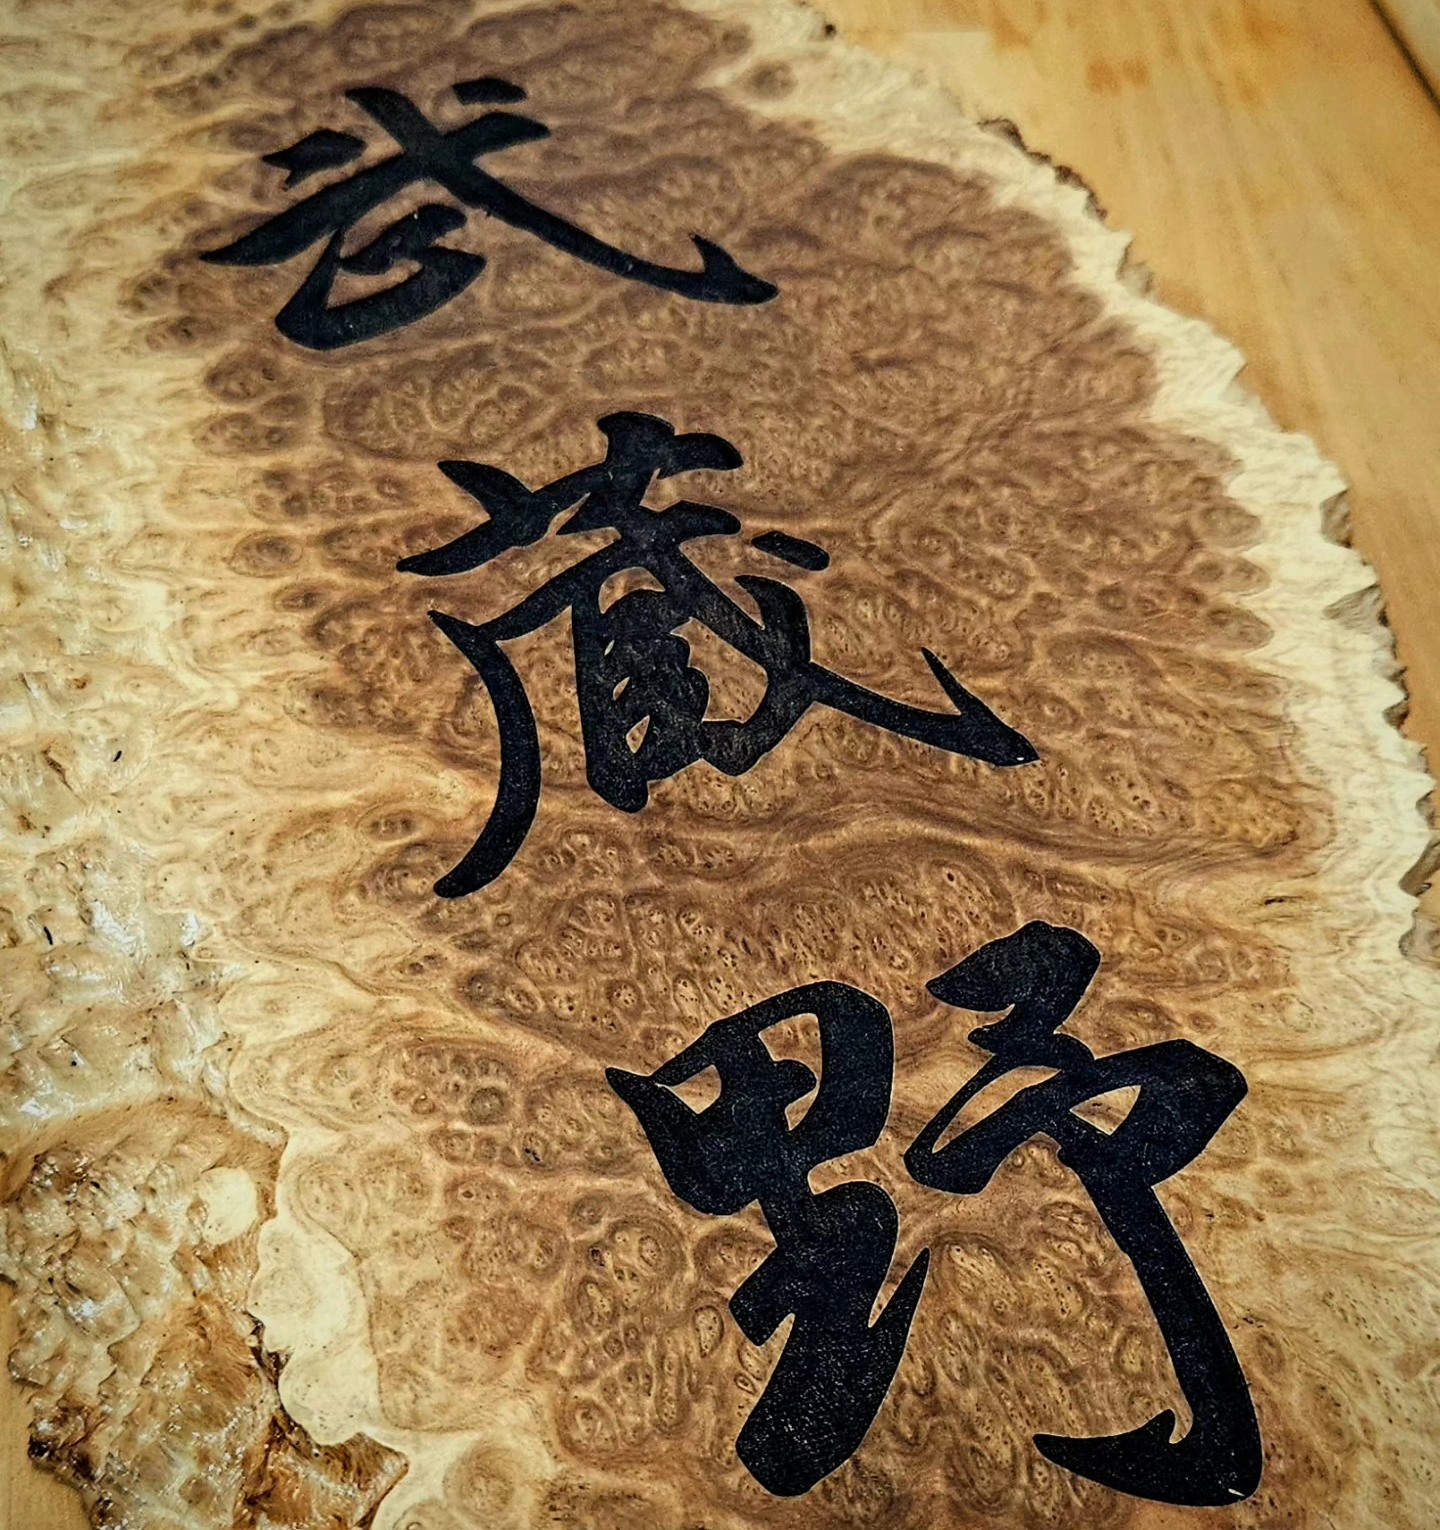 武蔵野